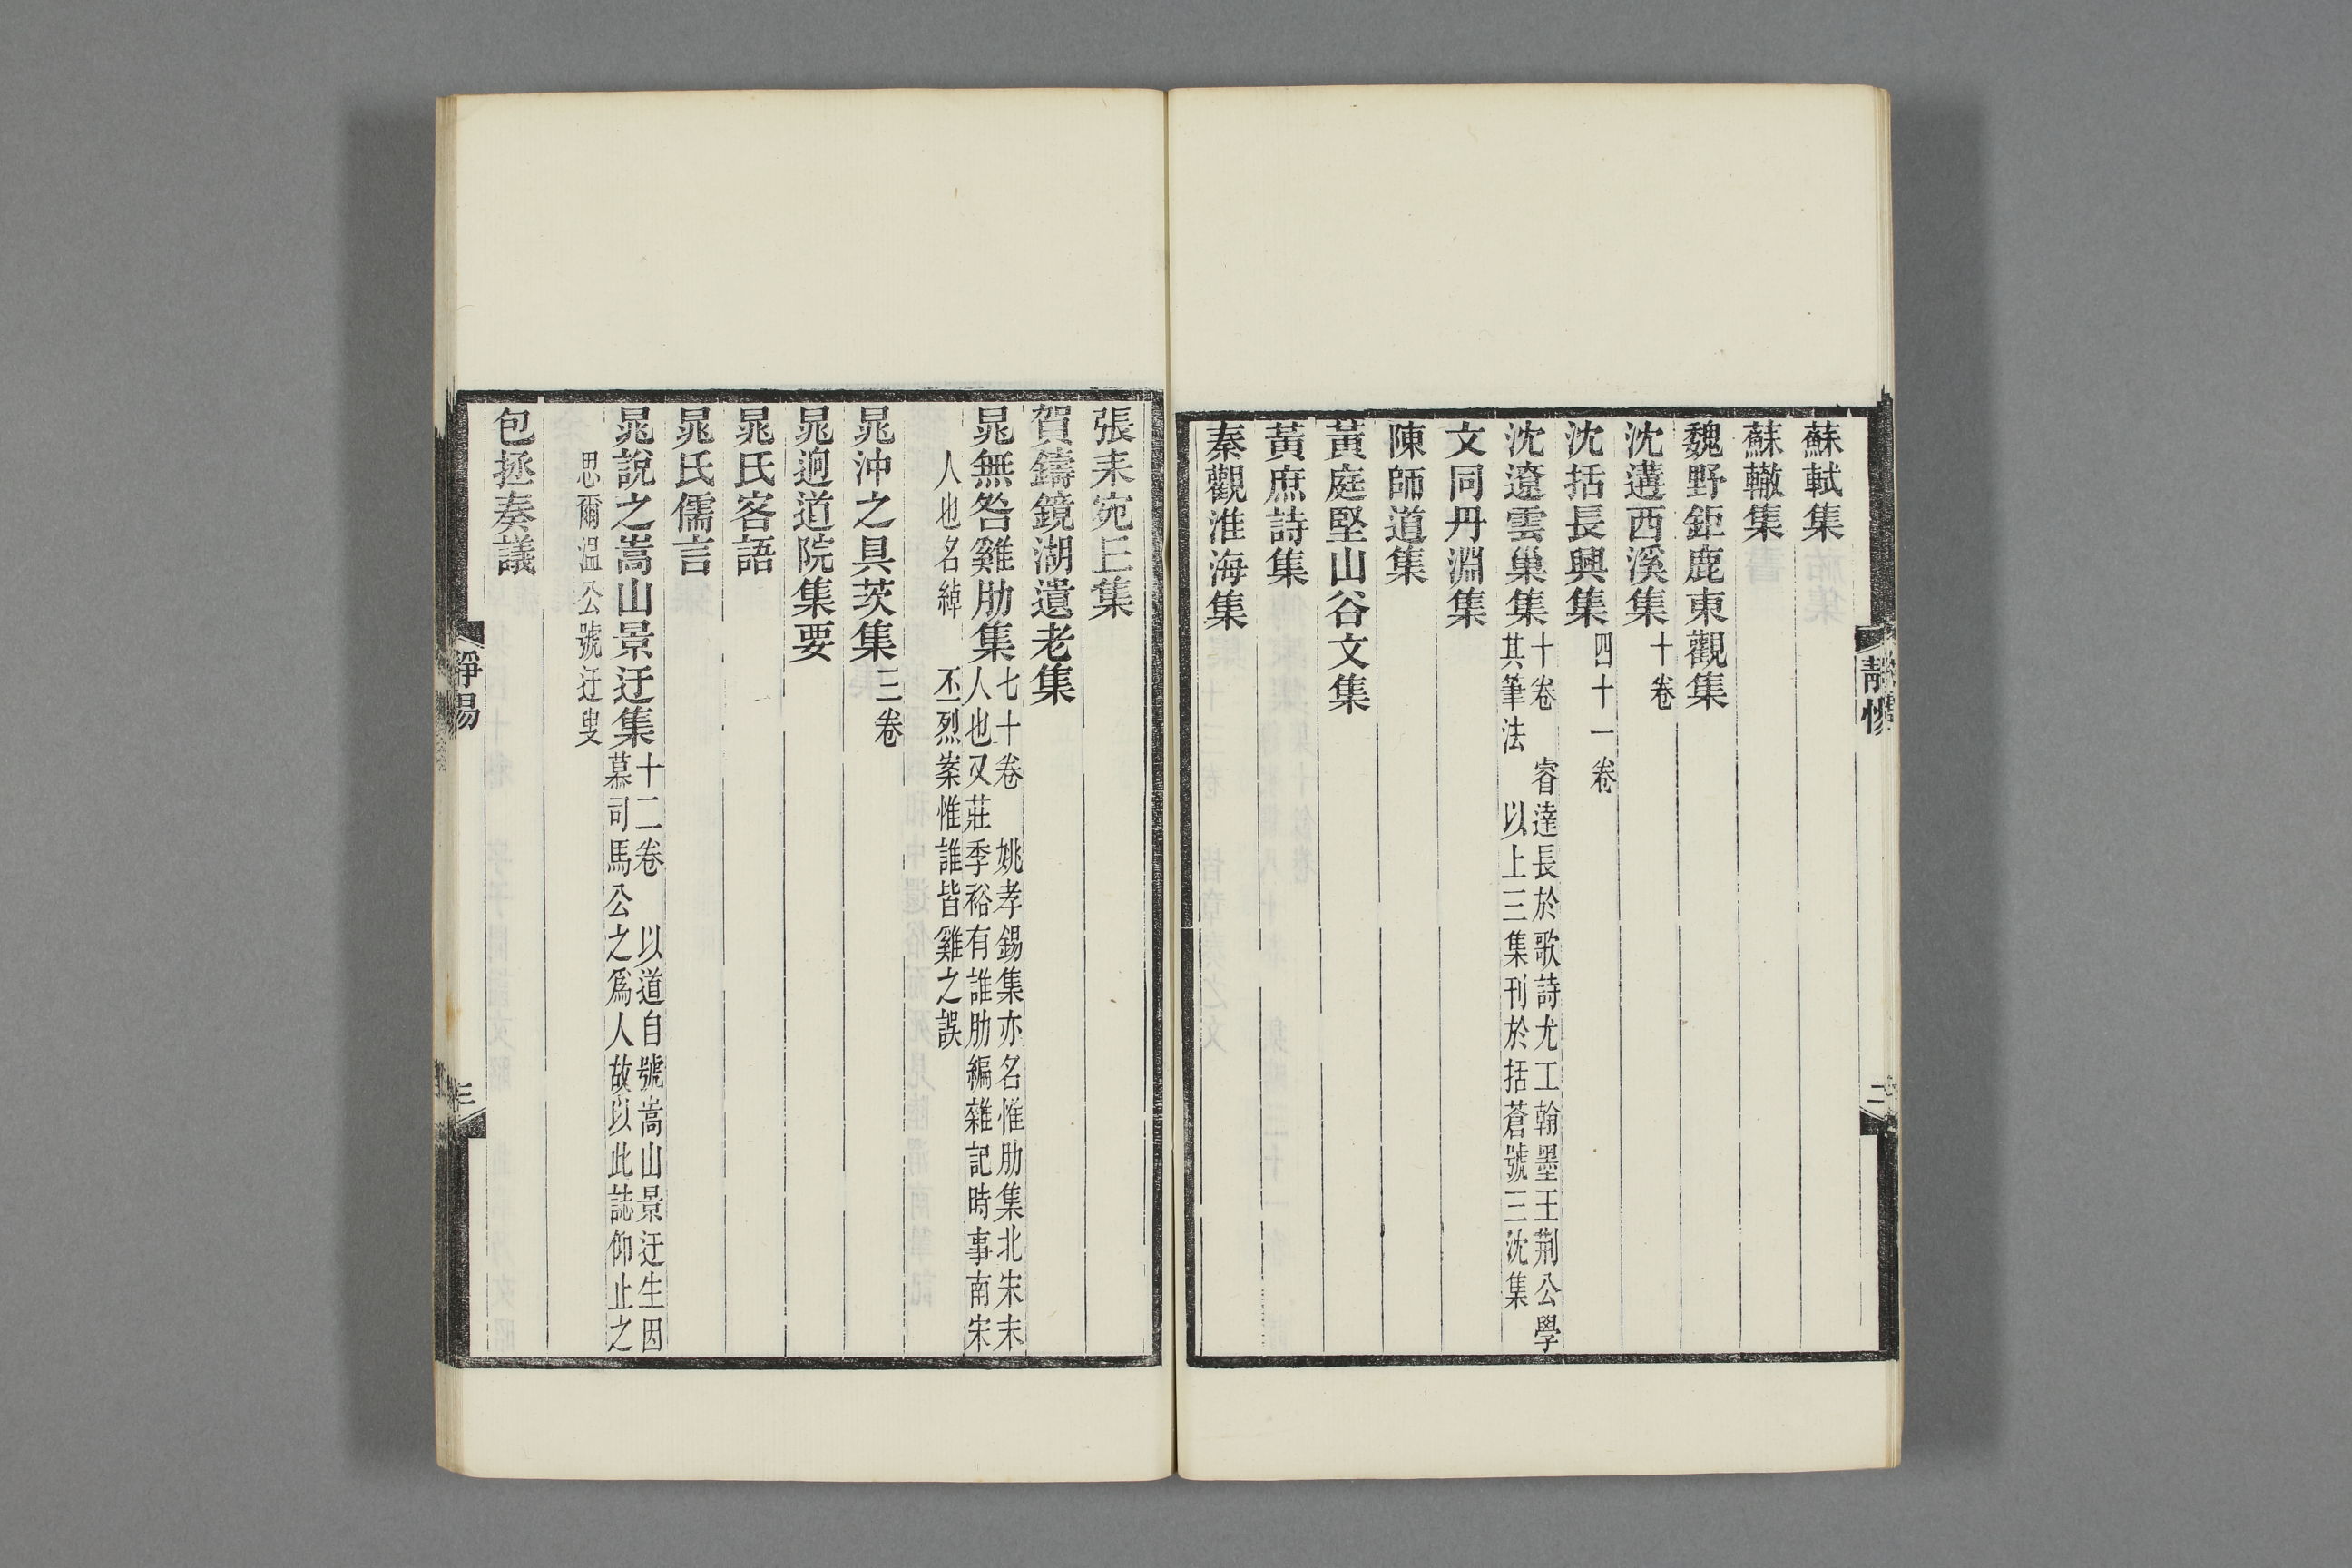 蘇軾集
蘇轍集
魏野鉅鹿東觀集
沈遘西溪集十卷
沈括長興集四十一卷
沈遼雲巢集十卷 睿達長於歌詩尤工翰墨王荊公學
其筆法 以上三集刊於括蒼號三沈集
文同丹淵集
陳師道集
黃庭堅山谷文集
黃庶詩集
秦觀淮海集
張耒宛丘集
賀鑄鏡湖遺老集
晁無咎雞肋集七十卷 姚孝錫集亦名惟肋集北宋末
人也又莊季裕有誰肋編雜記時事南宋
人也名綽
丕烈案惟誰皆雞之誤
晁沖之具茨集三卷
晁迥道院集要
晁氏客語
晁氏儒言
晁說之嵩山景迂集十二卷 以道自號嵩山景迂生因
慕司馬公之爲人故以此誌仰止之
思爾温公號迂叟
包拯奏議
三